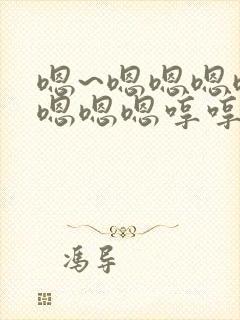 嗯~嗯嗯嗯
嗯嗯嗯哼哼
冯导